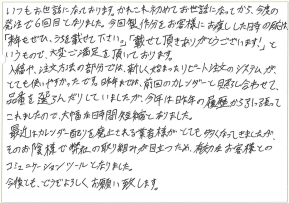 いつもお世話になっております。かれこれ初めてお世話になってから、今度の
発注で6回目となりました。今回製作分をお客様にお渡しした時の私は
「来年もぜひ、うちを載せて下さい。」「載せて頂きありがとうございます！」と
いうもので、大変ご満足を頂いております。
入稿や、注文方法の部分では、新しく始まったリピート注文のシステムが、
とても使いやすかったです。昨年までは、前回のカレンダーと照らし合わせて、
品番を選んだりしていましたが、今年は昨年の履歴から引っ張って
これましたので、大幅な時間短縮となりました。
最近はカレンダー配りを廃止される業者様がとても多くなってきましたが、
そのお陰様で弊社の取り組みが目立つため、貴重なお客様との
コミュニケーションツールとなりました。
今後も、どうぞよろしくお願い致します。